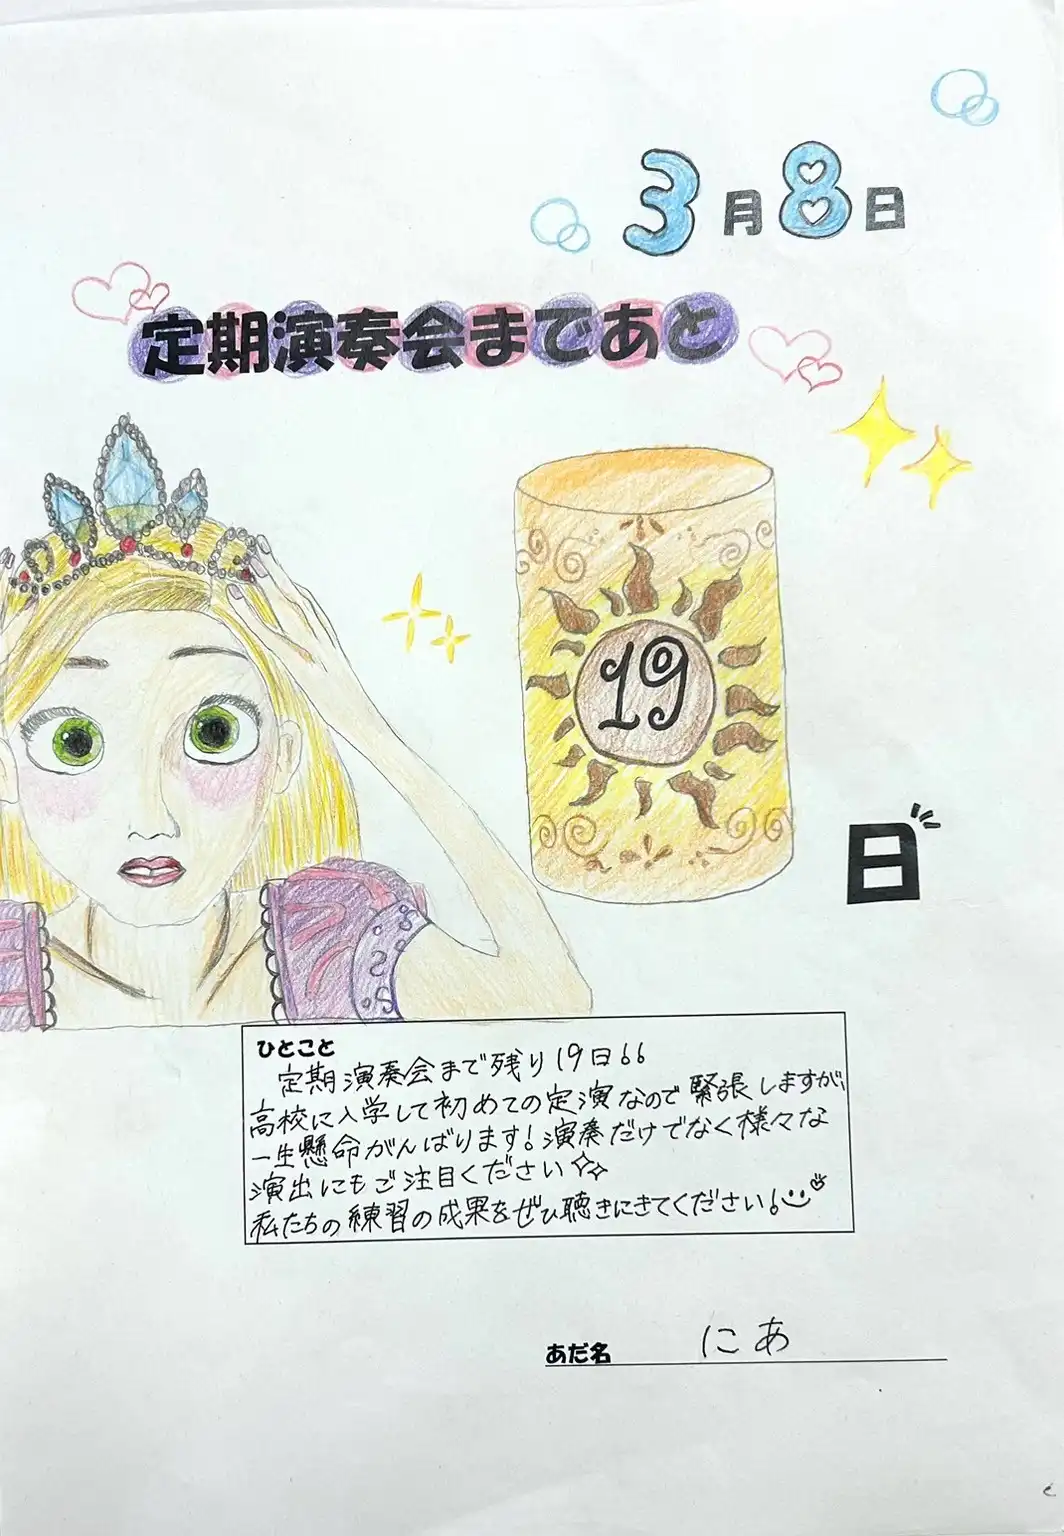 3月8日
定期演奏会まであと
19
日
ひとこと
定期演奏会まで残り19日66
高校に入学して初めての定演なので緊張しますが、
一生懸命がんばります!演奏だけでなく様々な
演出にもご注目ください✧✧
私たちの練習の成果をぜひ聴きにきてください!
あだ名 にあ